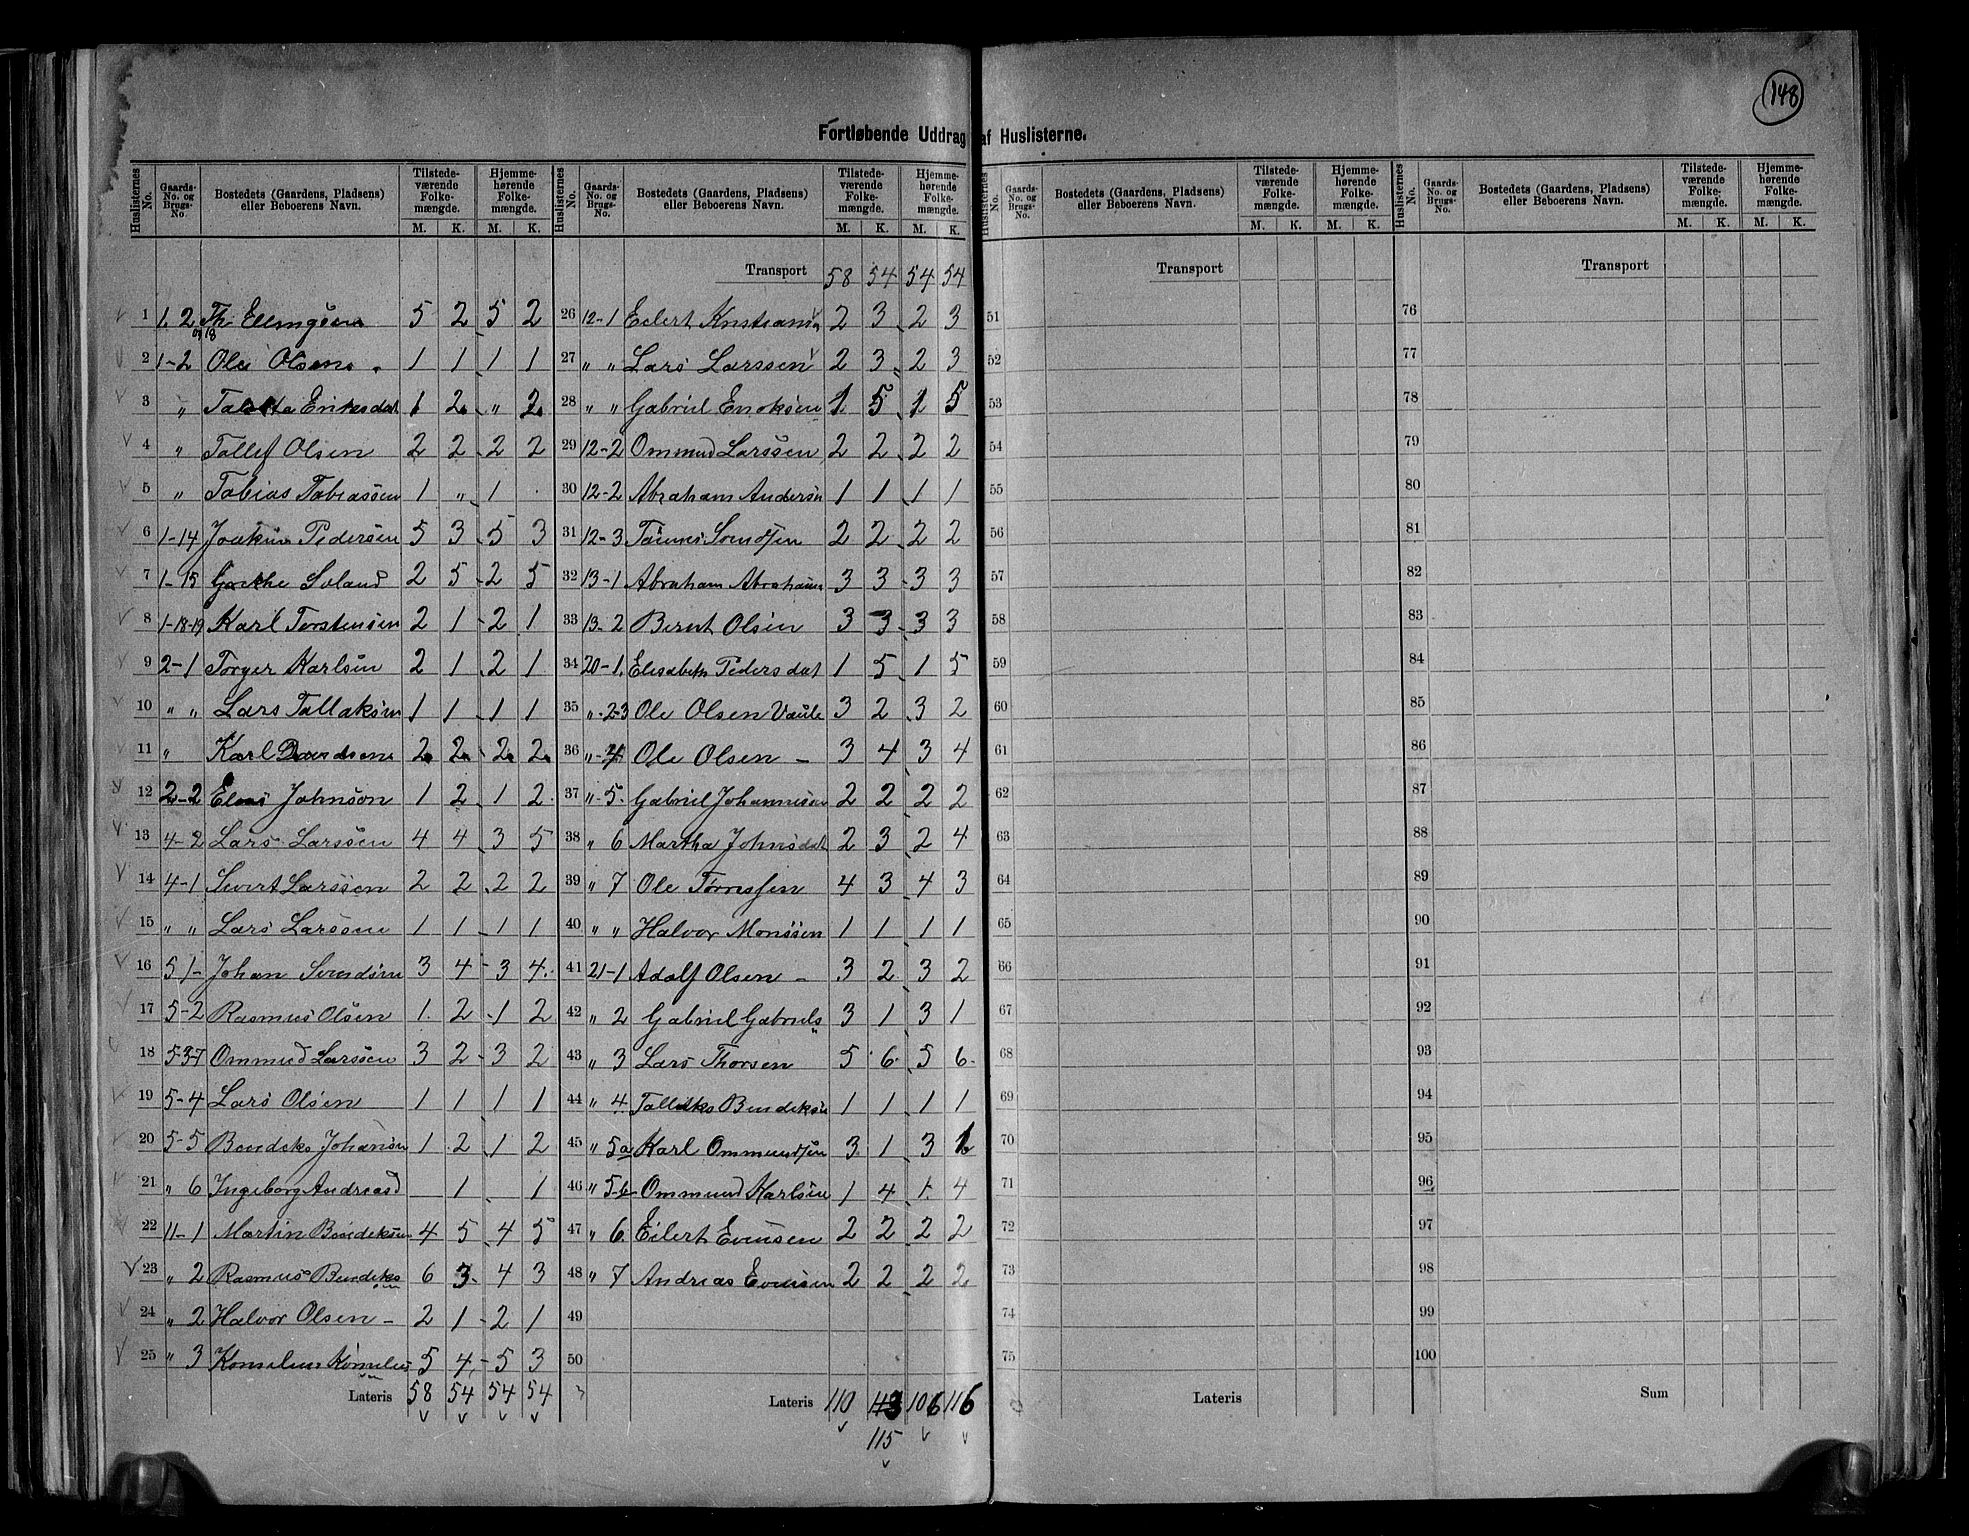 148
Fortløbende Uddrag af Huslisterne.
Huslisternes No. Gaards-No. og Brugs-No. Bostedets (Gaardens, Pladsens) eller Beboerens Navn. Tilstedeværende Folkemængde. M. K. Hjemmehørende Folkemængde. M. K.
1 1. 2 og 18 Th 5 2 5 2
2 1-2 Ole Olsen 1 1 1 1
3 " Eriksdat 1 2 " 2
4 " Tallef Olsen 2 2 2 2
5 " Tobias Tobiassen 1 " 1 .
6 1-14 Joakim Pedersen 5 3 5 3
7 1-15 Soland 2 5 2 5
8 1-18-19 Karl Torstensen 2 1 2 1
9 2-1 Torger Karlsen 2 1 2 1
10 " " Lars Tallaksen 1 1 1 1
11 " Karl 2 2 2 2
12 2-2 Elias Johnson 1 2 1 2
13 4-2 Lars Larssen 4 4 3 5
14 4-1 Sivert Larssen 2 2 2 2
15 " " Lars Larssen 1 1 1 1
16 5 1- Johan Svendsen 3 4 3 4
17 5-2 Rasmus Olsen 1 2 1 2
18 5-3-7 Ommund Larssen 3 2 3 2
19 5-4 Lars Olsen 1 1 1 1
20 5-5 Bendiks Johansen 1 2 1 2
21 " 6 Ingeborg Andreasd 1 1
22 11-1 Martin Bendiksen 4 5 4 5
23 " 2 Rasmus Bendiksen 6 3 4 3
24 " 2 Halvor Olsen - 2 1 2 1
25 " 3 5 4 5 3
Lateris 58 54 54 54
Huslisternes No. Gaards-No. og Brugs-No. Bostedets (Gaardens, Pladsens) eller Beboerens Navn. Tilstedeværende Folkemængde. M. K. Hjemmehørende Folkemængde. M. K.
Transport 58 54 54 54
26 12-1 Eilert 2 3 2 3
27 " " Lars Larssen 2 3 2 3
28 " " Gabriel Enoksen 1 5 1 5
29 12-2 Ommund Larssen 2 2 2 2
30 12-2 Abraham Andersn 1 1 1 1
31 12-3 Tønnes Svendsen 2 2 2 2
32 13-1 Abraham 3 3 3 3
33 13-2 Bernt Olsen 3 3 3 3
34 20-1. Elisabeth Pedersdat 1 5 1 5
35 " -2-3 Ole Olsen 3 2 3 2
36 " -4 Ole Olsen - 3 4 3 4
37 " -5. Gabriel Johannesen 2 2 2 2
38 " 6 Martha Johnsdat 2 3 2 4
39 " 7 Ole Tørressen 4 3 4 3
40 " " Halvor Monssen 1 1 1 1
41 21-1 Adolf Olsen - 3 2 3 2
42 " 2 Gabriel Gabriels 3 1 3 1
43 " 3 Lars Thorsen 5 6 5 6
44 " 4 Bendiksen 1 1 1 1
45 " 5a Karl Ommundsen 3 1 3 1
46 " 5-b Ommund Karlsen 1 4 1 4
47 " 6. Eilert Evensen 2 2 2 2
48 " 7 Andreas Evensen 2 2 2 2
49
50
Lateris 110 113 106 116
115
Huslisternes No. Gaards-No. og Brugs-No. Bostedets (Gaardens, Pladsens) eller Beboerens Navn. Tilstedeværende Folkemængde. M. K. Hjemmehørende Folkemængde. M. K.
Transport
51
52
53
54
55
56
57
58
59
60
61
62
63
64
65
66
67
68
69
70
71
72
73
74
75
Lateris
Huslisternes No. Gaards-No. og Brugs-No. Bostedets (Gaardens, Pladsens) eller Beboerens Navn. Tilstedeværende Folkemængde. M. K. Hjemmehørende Folkemængde. M. K.
Transport
76
77
78
79
80
81
82
83
84
85
86
87
88
89
90
91
92
93
94
95
96
97
98
99
100
Sum